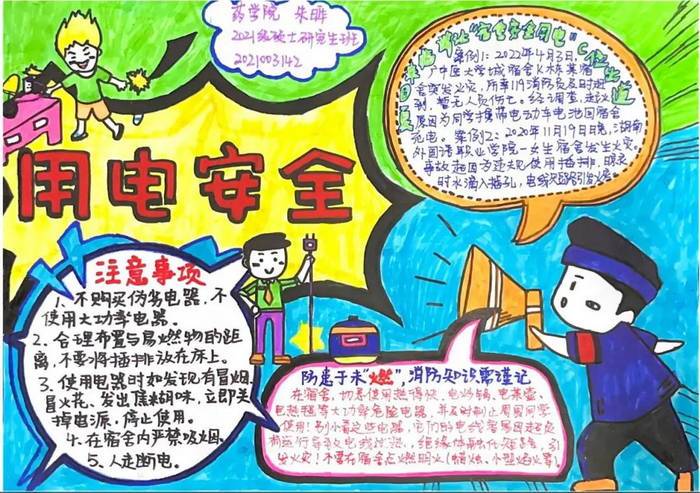 药学院 朱晔
2021级硕士研究生班
2021003142
用电安全
案例1：2022年4月3日，
广中医大学城宿舍K栋某宿
舍突发火灾，所幸119消防员及时赶
到，暂无人员伤亡。经调查，起火
原因为同学携带电动车电池回宿舍
充电。案例2：2020年11月19日晚，湖南
外国语职业学院一女生宿舍发生火灾。
事故起因为违规使用插排，晾衣
时水滴入插孔，电线短路引发火灾
注意事项
1、不购买伪劣电器，不
使用大功率电器。
2、合理布置与易燃物的距
离，不要将插排放在床上。
3、使用电器时如发现有冒烟、
冒火花、发出焦糊味，立即关
掉电源，停止使用。
4、在宿舍内严禁吸烟。
5、人走断电。
防患于未“燃”，消防知识需谨记
在宿舍，切忌使用热得快、电炉锅、电煮壶、
电热毯等大功率危险电器，并及时制止周围同学
使用！别小看这些电器，它们的电线容易因超负
发火灾！不要在宿舍点燃明火（蜡烛、小型焰火等）